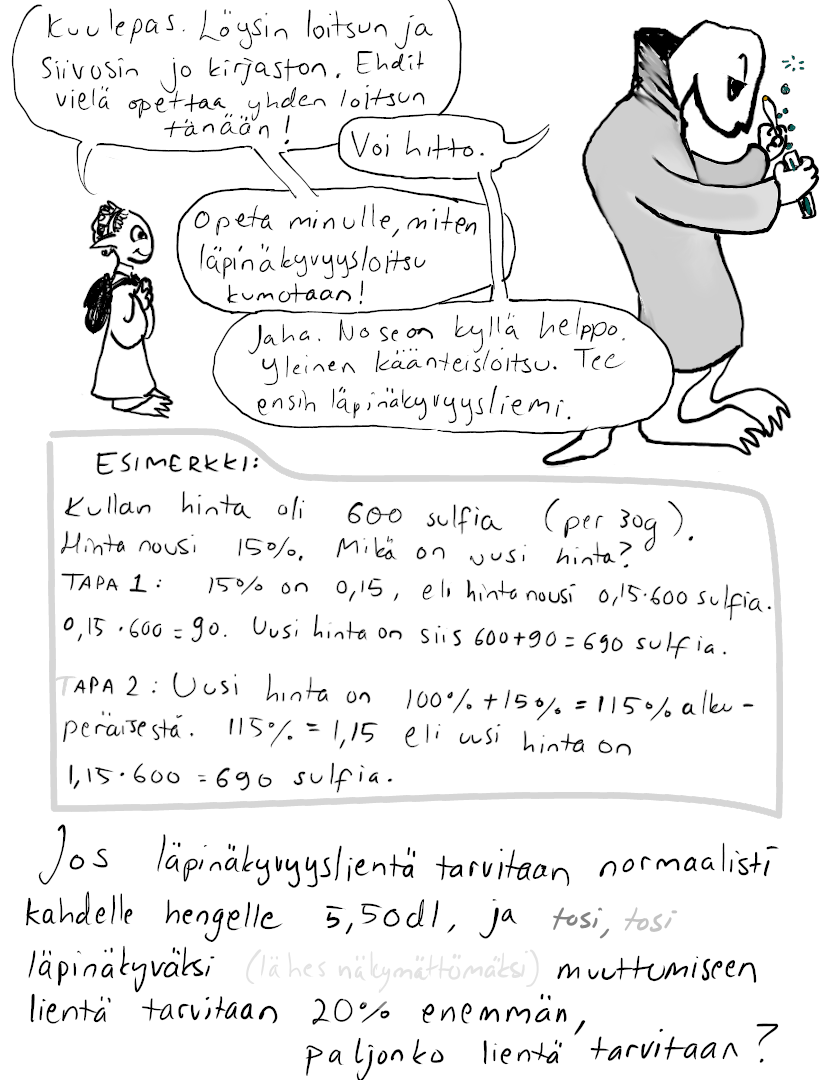 Kuulepas. Löysin loitsun ja
siivosin jo kirjaston. Ehdit
vielä opettaa yhden loitsun
tänään!
Voi hitto.
Opeta minulle, miten
läpinäkyvyysloitsu
kumotaan!
Jaha. No se on kyllä helppo.
Yleinen käänteisloitsu. Tee
ensin läpinäkyvyysliemi.
ESIMERKKI:
Kullan hinta oli 600 sulfia (per 30g).
Hinta nousi 15%. Mikä on uusi hinta?
TAPA 1: 15% on 0,15, eli hinta nousi 0,15·600 sulfia.
0,15·600 = 90. Uusi hinta on siis 600+90=690 sulfia.
TAPA 2: Uusi hinta on 100%+15%=115% alku-
peräisestä. 115% = 1,15 eli uusi hinta on
1,15·600 = 690 sulfia.
Jos läpinäkyvyyslientä tarvitaan normaalisti
kahdelle hengelle 5,50dl, ja tosi, tosi
läpinäkyväksi (lähes näkymättömäksi) muuttumiseen
lientä tarvitaan 20% enemmän,
paljonko lientä tarvitaan?